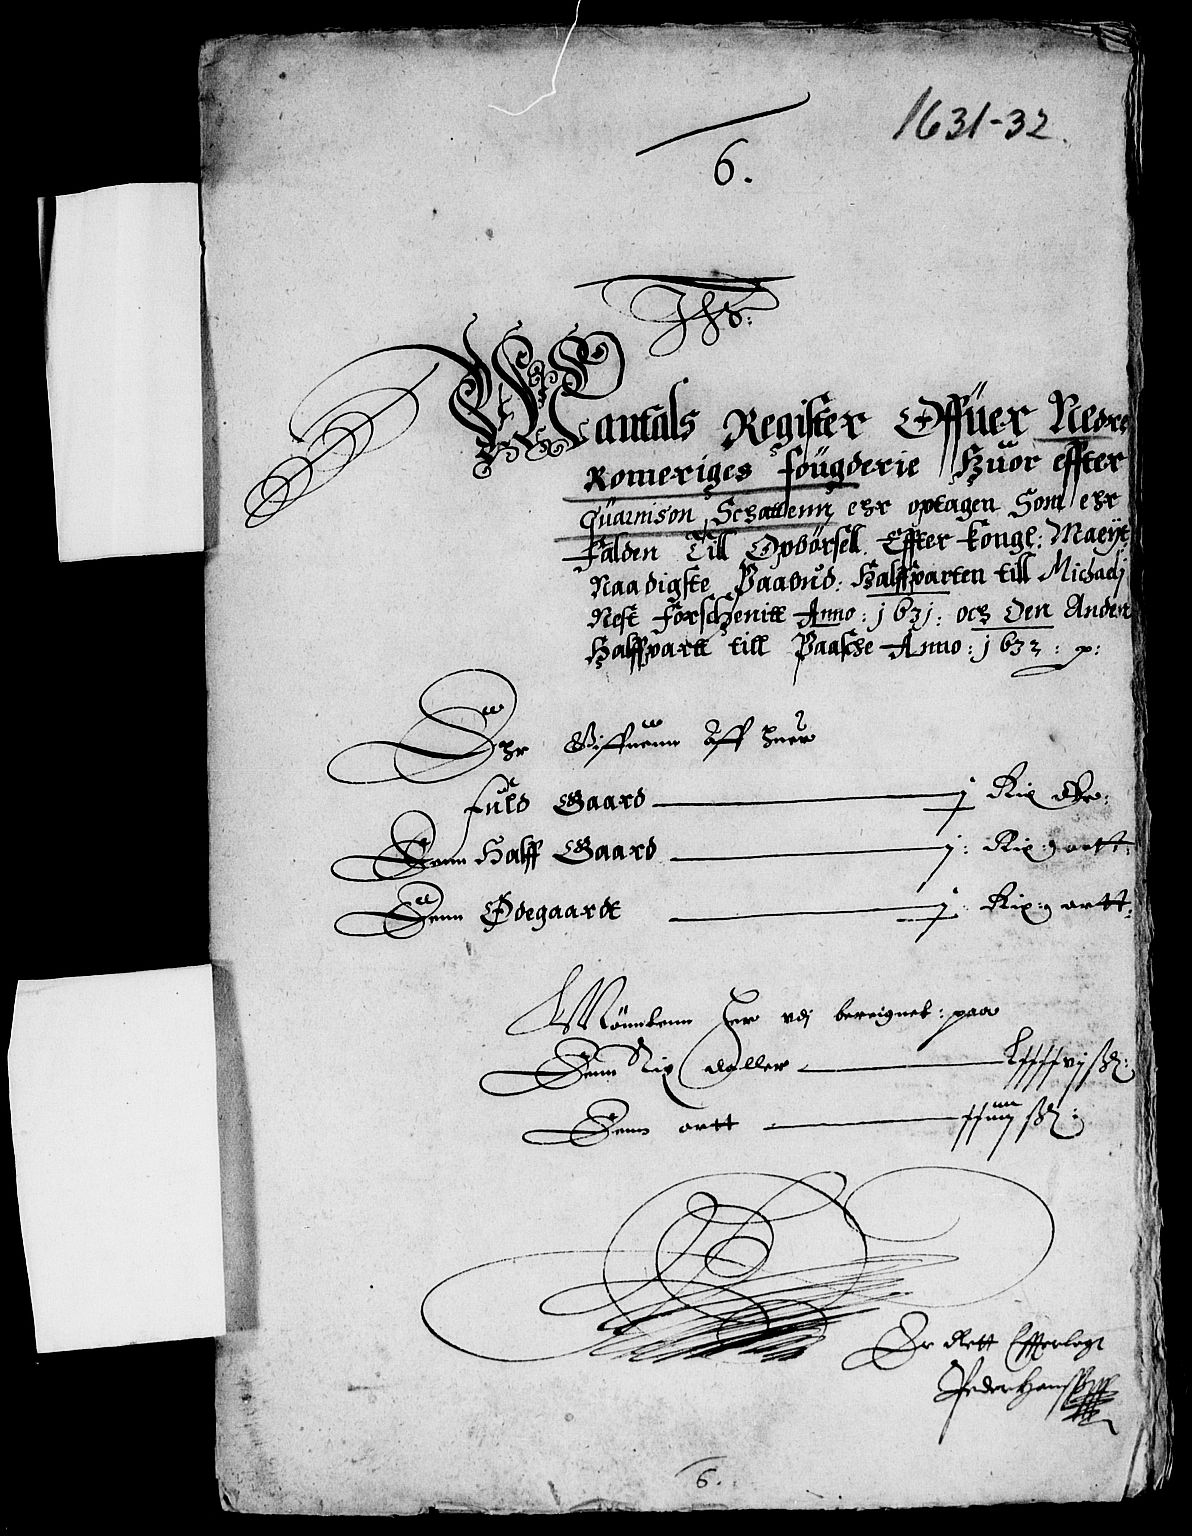 1631-32.
6.
Jhs:
Mantals Register Offuer Nedre
Romeriges fougderie Huor effter
Guarnison Schattenn ehr optagen Som ehr
falden Till Opbørsell Effter kongl: Maeyt
Naadigste Paabud: Halffparten till Michaelj
Nest forschenitt Anno: j63j: och Den Anden
Halffpartt till Paasche Anno: j632: p:
Ehr Giffuenn Aff huer
fuld Gaard j Rix dlr:
Denn Halff Gaard j: Rix: ortt:
Denn Ødegaardt j Rix: ortt:
Mønntenn Er vdj bereignet: paa
Denn Rix daller
Denn ortt
Er Rett Effterlagt
Peder Hanss
6.